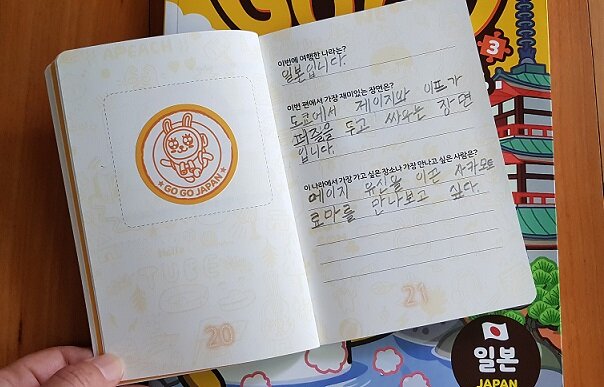 GO GO JAPAN
20
이번에 여행한 나라는?
일본입니다.
이번 편에서 가장 재미있는 장면은?
도쿄에서 제이지와 어프가
퍼즐을 두고 싸우는 장면
입니다.
이 나라에서 가장 가고 싶은 장소나 가장 만나고 싶은 사람은?
메이지 유신을 이끈 사카모토
료마를 만나보고 싶다.
21
3
일본
JAPAN